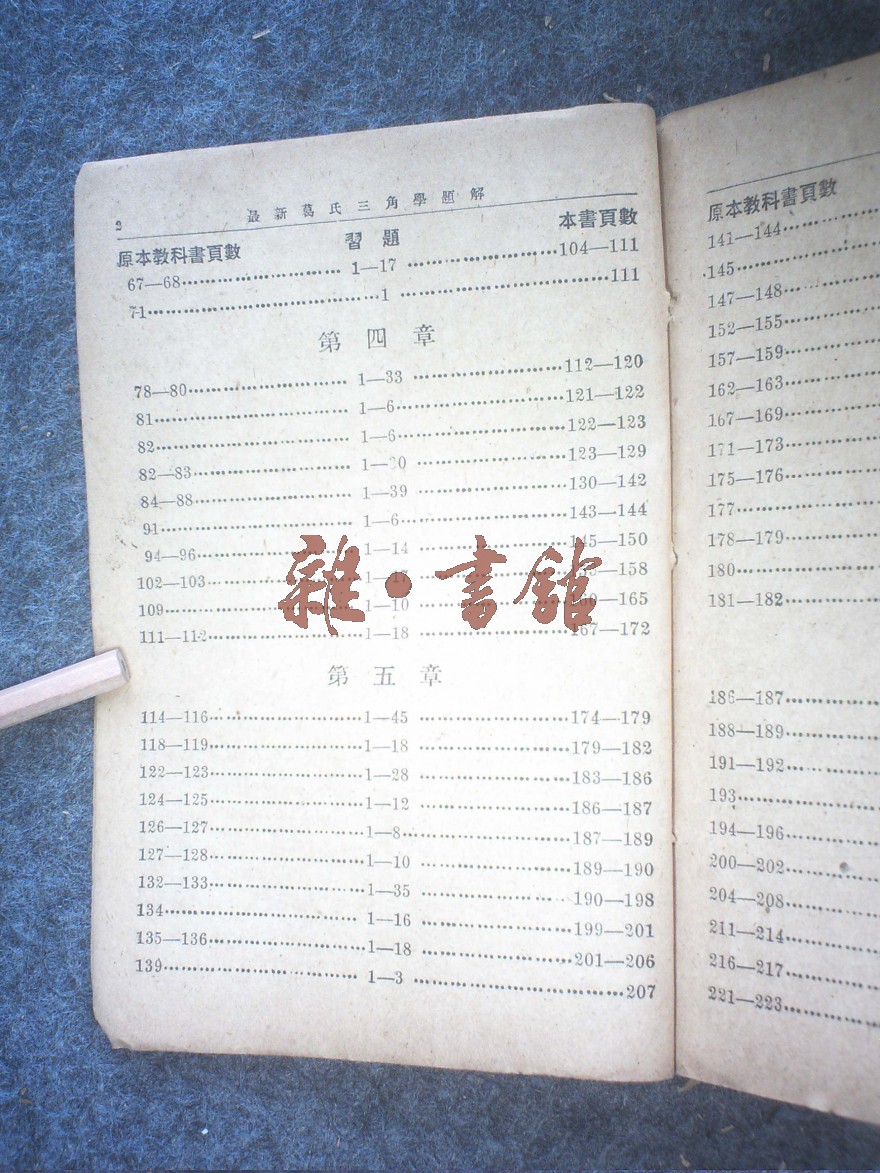 2 最新葛氏三角學題解
原本教科書頁數 習題 本書頁數
67—68 1—17 104—111
71 1 111
第四章
78—80 1—33 112—120
81 1—6 121—122
82 1—6 122—123
82—83 123—129
84—88 1—39 130—142
91 1—6 143—144
94—96 1—14 145—150
102—103 1—17 —158
109 1—10 160—165
111—112 1—18 167—172
第五章
114—116 1—45 174—179
118—119 1—18 179—182
122—123 1—28 183—186
124—125 1—12 186—187
126—127 1—8 187—189
127—128 1—10 189—190
132—133 1—35 190—198
134 1—16 199—201
135—136 1—18 201—206
139 1—3 207
雜·書館
原本教科書頁數
141—144
145
147—148
152—155
157—159
162—163
167—169
171—173
175—176
177
178—179
180
181—182
186—187
188—189
191—192
193
194—196
200—202
204—208
211—214
216—217
221—223